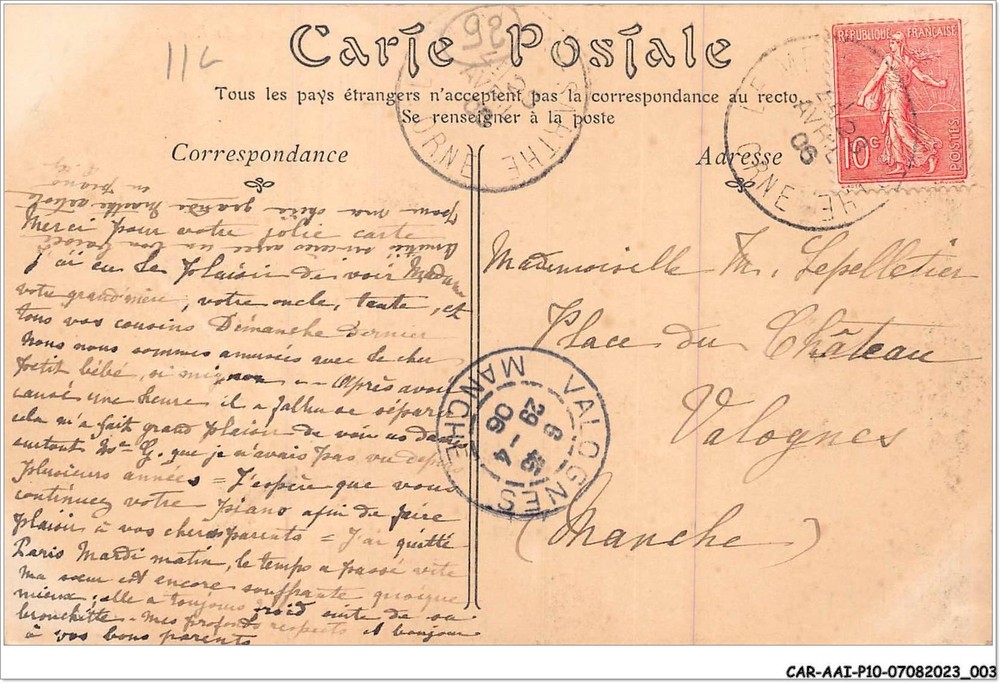 11
Carte Postale
Tous les pays étrangers n'acceptent pas la correspondance au recto.
Se renseigner à la poste
Correspondance
Adresse
RÉPUBLIQUE FRANÇAISE
10c
POSTES
LE MÊLE S SARTHE
ORNE
AVRIL
06
VALOGNES
MANCHE
29 - 4
06
Merci pour votre jolie carte
j'ai eu le plaisir de voir Madame
votre grand'mère, votre oncle, tante, et
tous vos cousins Dimanche dernier
nous nous sommes amusées avec le cher
petit bébé, si mignon -- Après avoir
causé une heure il a fallu se séparer
cela m'a fait grand plaisir de voir ces dames
surtout Me G. que je n'avais pas vu depuis
plusieurs années = J'espère que vous
continuez votre piano afin de faire
plaisir à vos chers parents = J'ai quitté
Paris Mardi matin, le temps a passé vite
ma sœur est encore souffrante quoique
mieux, elle a toujours froid suite de sa
bronchitte - mes profonds respects et bonjour
à vos bons parents
pour ma chère grande
Mademoiselle M. Lepelletier
Place du Château
Valognes
(Manche)
CAR-AAI-P10-07082023_003